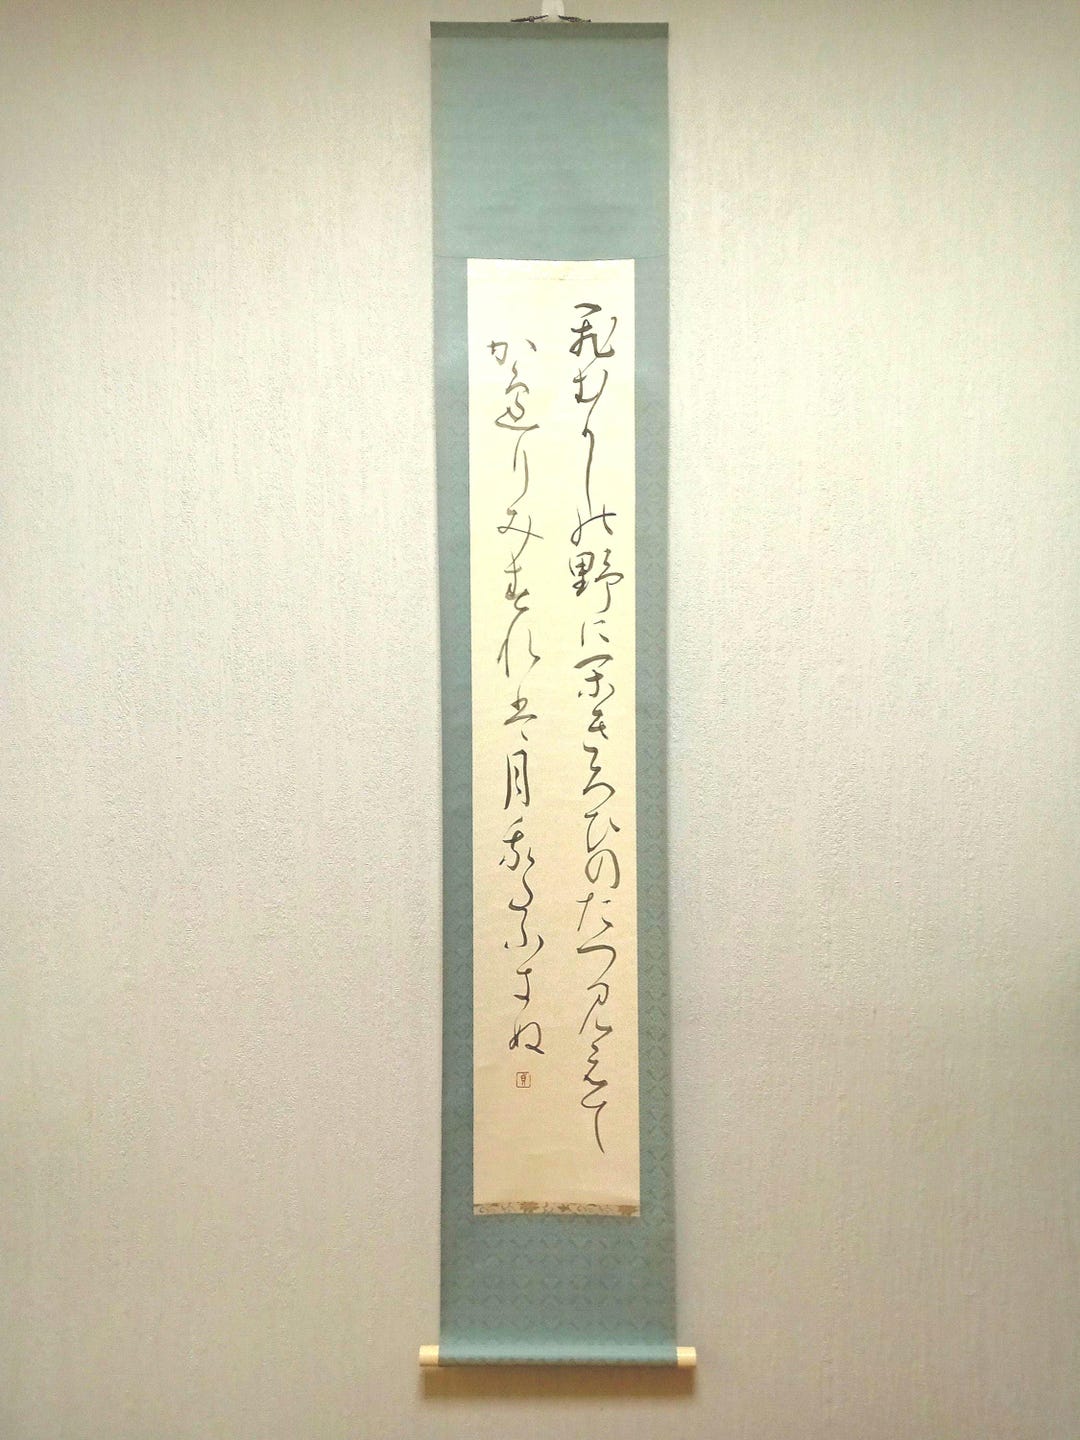 ひむかしの野にかきろひのたつ見えて
かへりみすれは月かたふきぬ